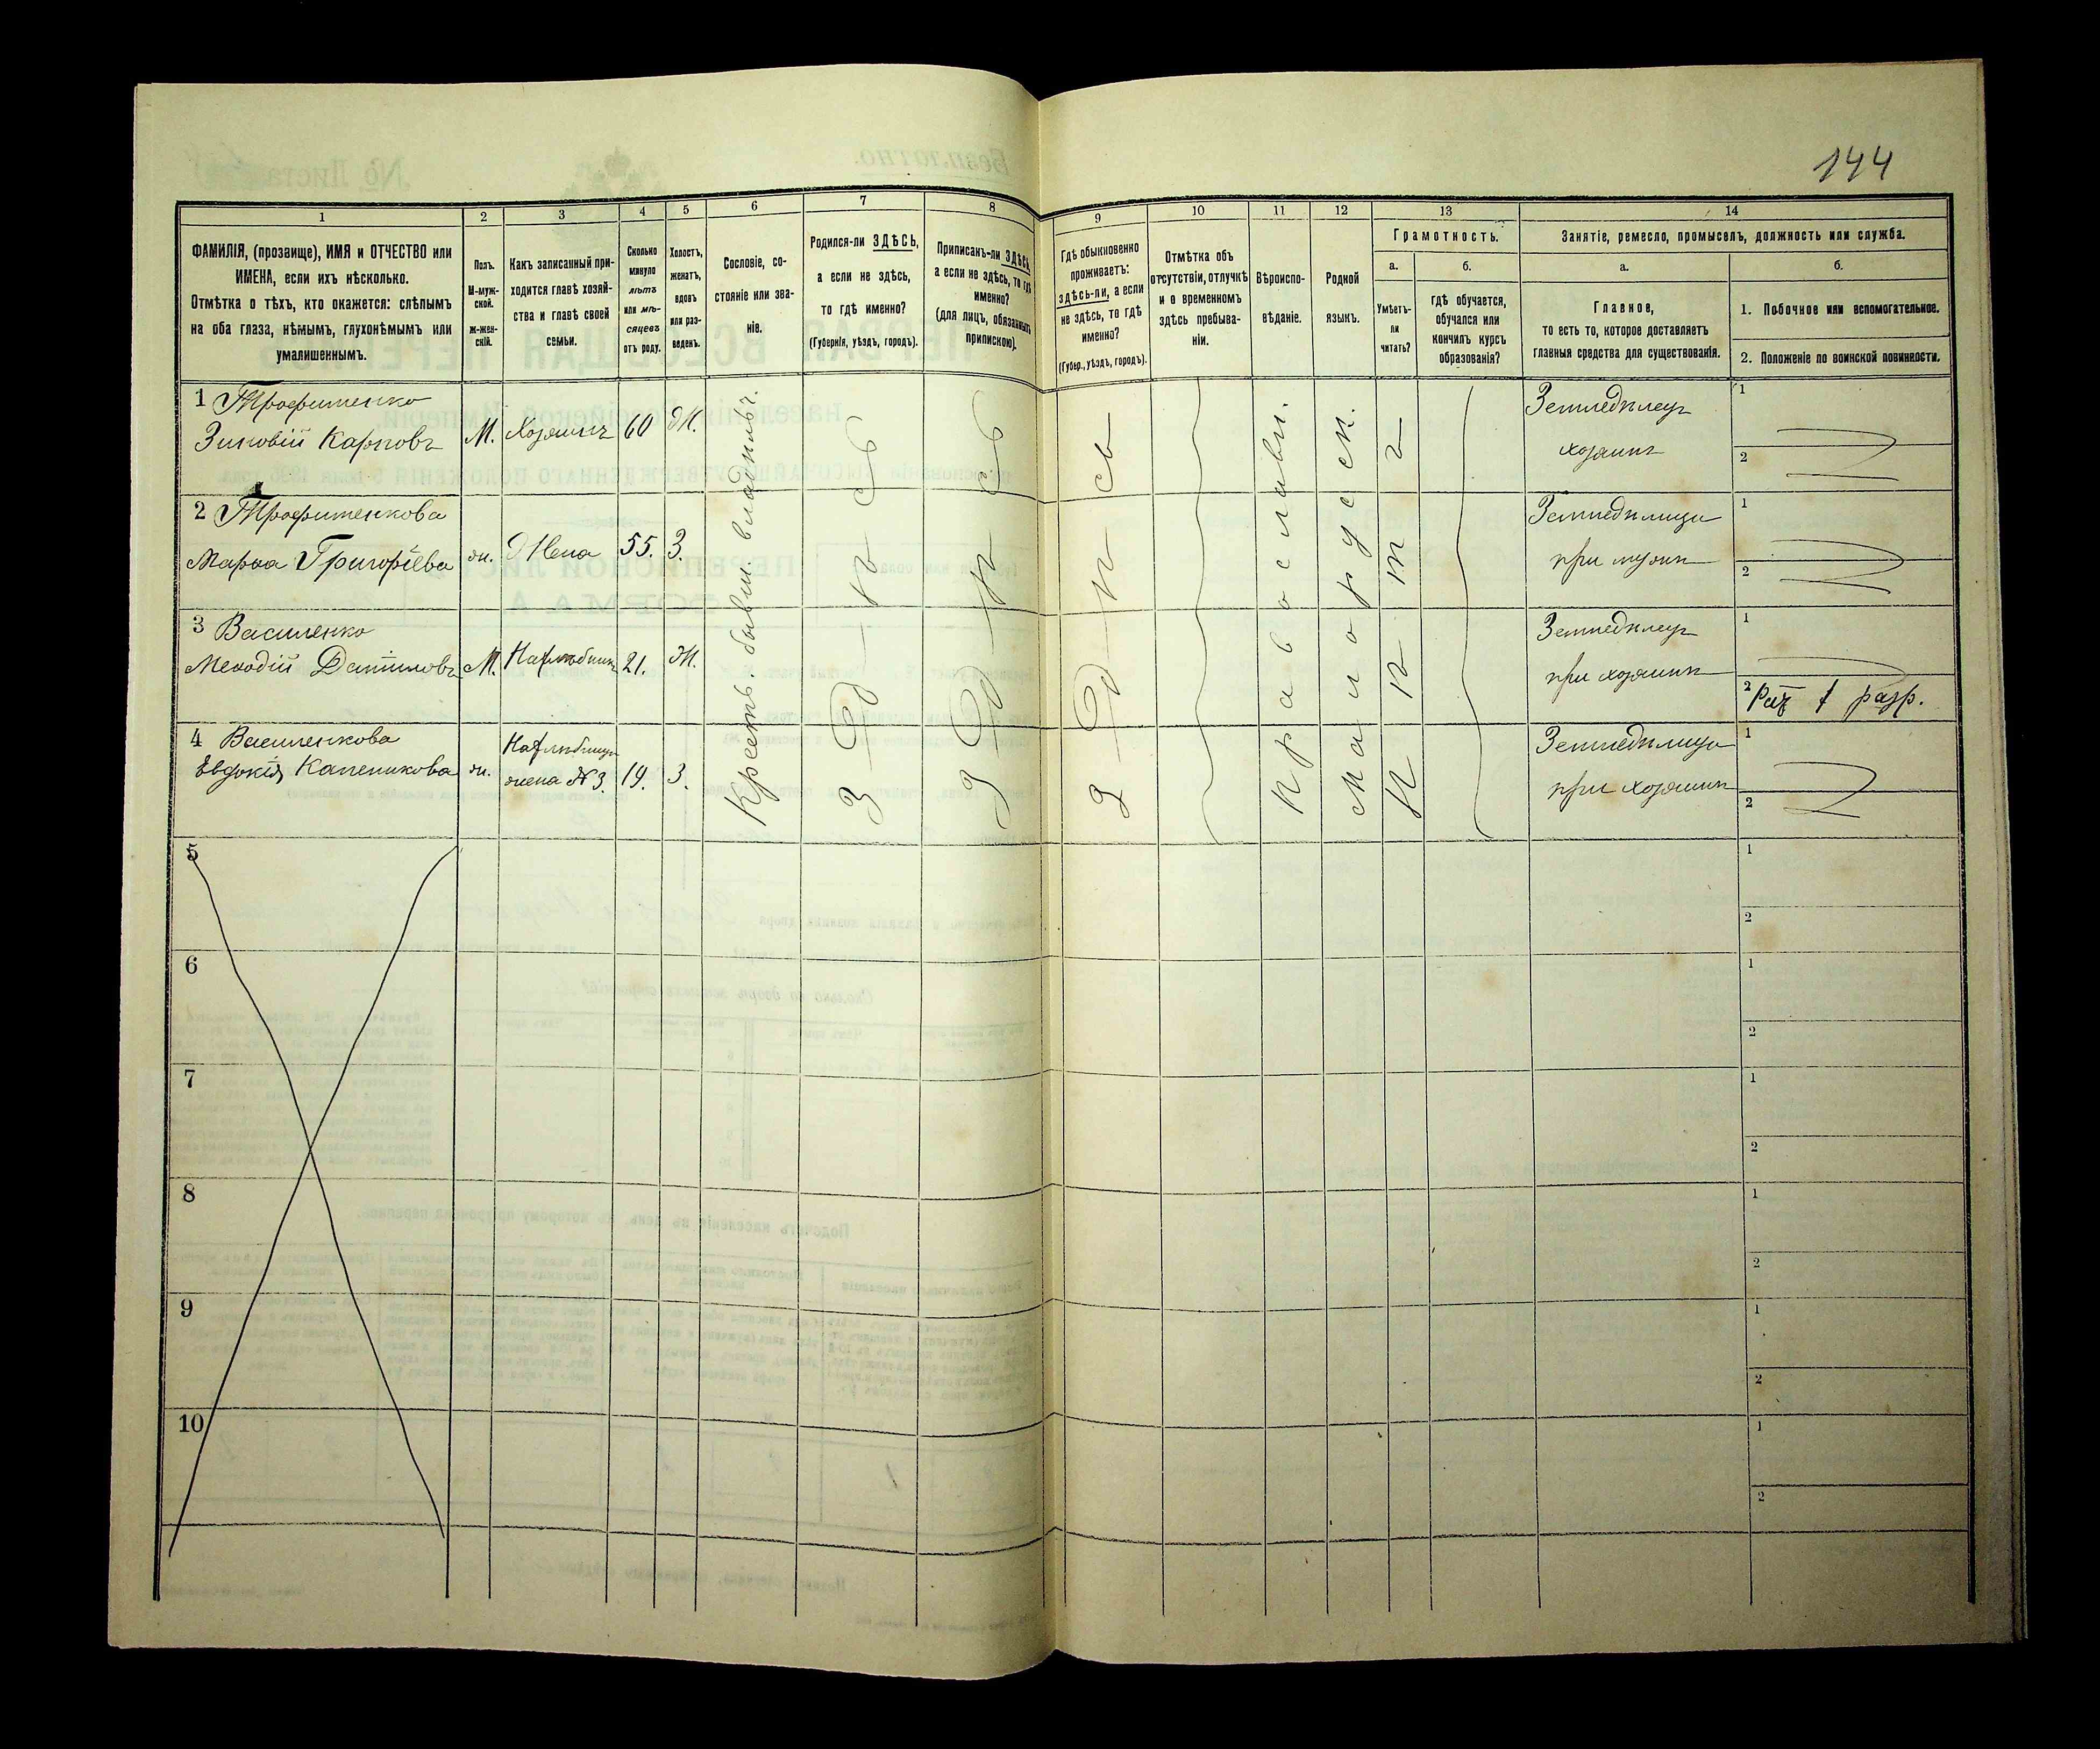 144
1 2 3 4 5 6 7 8 9 10 11 12 13 14
ФАМИЛІЯ, (прозвище), ИМЯ и ОТЧЕСТВО или
ИМЕНА, если ихъ нѣсколько.
Отмѣтка о тѣхъ, кто окажется: слѣпымъ
на оба глаза, нѣмымъ, глухонѣмымъ или
умалишеннымъ.
Полъ.
М-муж-
ской.
Ж-жен-
скій.
Какъ записанный при-
ходится главѣ хозяй-
ства и главѣ своей
семьи.
Сколько
минуло
лѣтъ
или мѣ-
сяцевъ
отъ роду.
Холостъ,
женатъ,
вдовъ
или раз-
веденъ.
Сословіе, со-
стояніе или зва-
ніе.
Родился-ли ЗДѢСЬ,
а если не здѣсь,
то гдѣ именно?
(Губернія, уѣздъ, городъ).
Приписанъ-ли ЗДѢСЬ,
а если не здѣсь, то гдѣ
именно?
(для лицъ, обязанныхъ
припискою).
Гдѣ обыкновенно
проживаетъ:
здѣсь-ли, а если
не здѣсь, то гдѣ
именно?
(Губер., уѣздъ, городъ).
Отмѣтка объ
отсутствіи, отлучкѣ
и о временномъ
здѣсь пребыва-
ніи.
Вѣроиспо-
вѣданіе.
Родной
языкъ.
Грамотность.
а.
Умѣетъ-
ли
читать?
б.
гдѣ обучается,
обучался или
кончилъ курсъ
образованія?
Занятіе, ремесло, промыселъ, должность или служба.
а.
Главное,
то есть то, которое доставляетъ
главныя средства для существованія.
б.
1. Побочное или вспомогательное.
2. Положеніе по воинской повинности.
1 Трофименко
Зиновій Карповъ М. Хозяинъ 60 Ж.
Земледѣлецъ
хозяинъ
1
2
2 Трофименкова
Марѳа Григорьева ж. Жена 55. З.
Земледѣлица
при мужѣ
1
2
3 Василенко
Меѳодій Даниловъ М. Нахлѣбникъ 21. Ж.
Земледѣлецъ
при хозяинѣ
1
2 Рат 1 разр.
4 Василенкова
Евдокія ж. Нахлѣбница
жена №3. 19. З.
Земледѣлица
при хозяинѣ
1
2
Кресть. бывш. владѣльч.
З д ѣ с ь
З д ѣ с ь
З д ѣ с ь
Православн.
Малорусск.
н ѣ т ъ
5 1
2
6 1
2
7 1
2
8 1
2
9 1
2
10 1
2